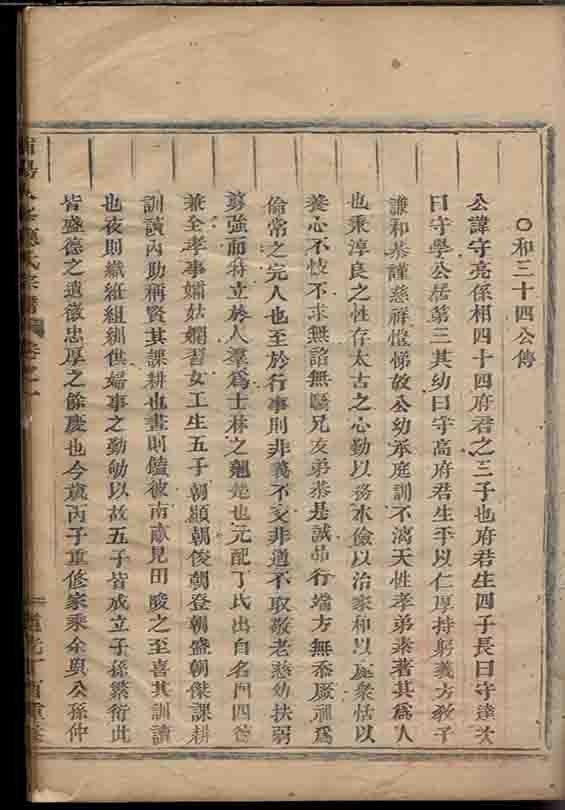 ○和三十四公傳
公諱守亮係相四十四府君之三子也府君生四子長曰守達次
曰守學公居第三其幼曰守高府君生平以仁厚持躬義方教子
謙和恭謹慈祥愷悌故公幼承庭訓不漓天性孝弟素著其為人
也秉淳良之性存太古之心勤以務本儉以治家和以處衆恬以
養心不忮不求無諂無驕兄友弟恭是誠品行端方無忝厥祖為
倫常之完人也至於行事則非義不交非道不取敬老慈幼扶弱
鋤強而特立於人羣為士林之翹楚也元配丁氏出自名門四德
兼全孝事孀姑嫻習女工生五子朝顯朝俊朝登朝盛朝傑課耕
訓讀內助稱賢其課耕也晝則饁彼南畝見田畯之至喜其訓讀
也夜則織紝組紃供婦事之勤劬以故五子皆成立子孫繁衍此
皆盛德之遺徵忠厚之餘慶也今歲丙子重修家乘余與公孫仲
氏宗譜 卷之一